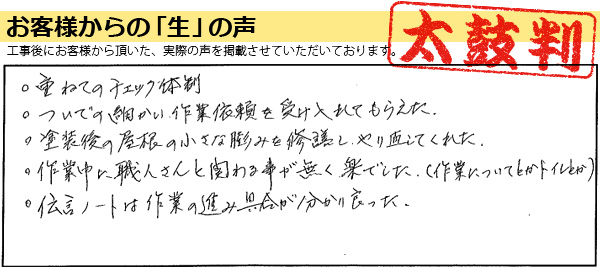 お客様からの「生」の声
太鼓判
工事後にお客様から頂いた、実際の声を掲載させていただいております。
○重ねてのチェック体制
○ついでの細かい作業依頼を受け入れてもらえた。
○塗装後の屋根の小さな膨みを修護し、やり直してくれた。
○作業中に職人さんと関わる事が無く楽でした。(作業についてとかトイレとか)
○伝言ノートは作業の進み具合が分かり良かった。